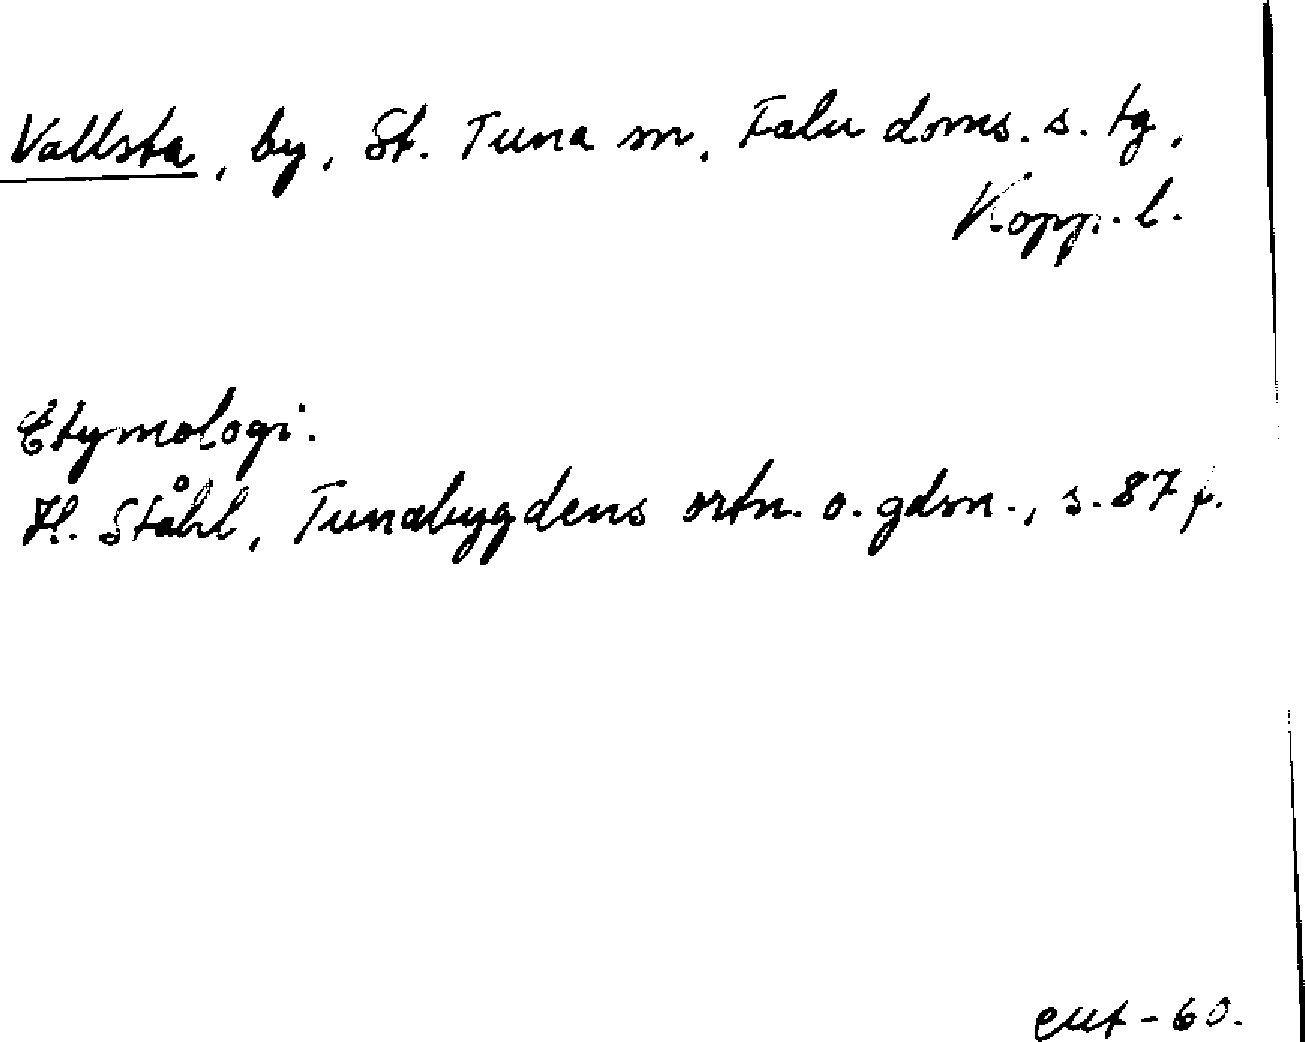 Vallsta, by, St. Tuna sn, Falu doms. s. tg,
Kopp. l.
Etymologi.
H. Ståhl, Tunabygdens ortn. o. gdsn., s. 87 f.
-60.